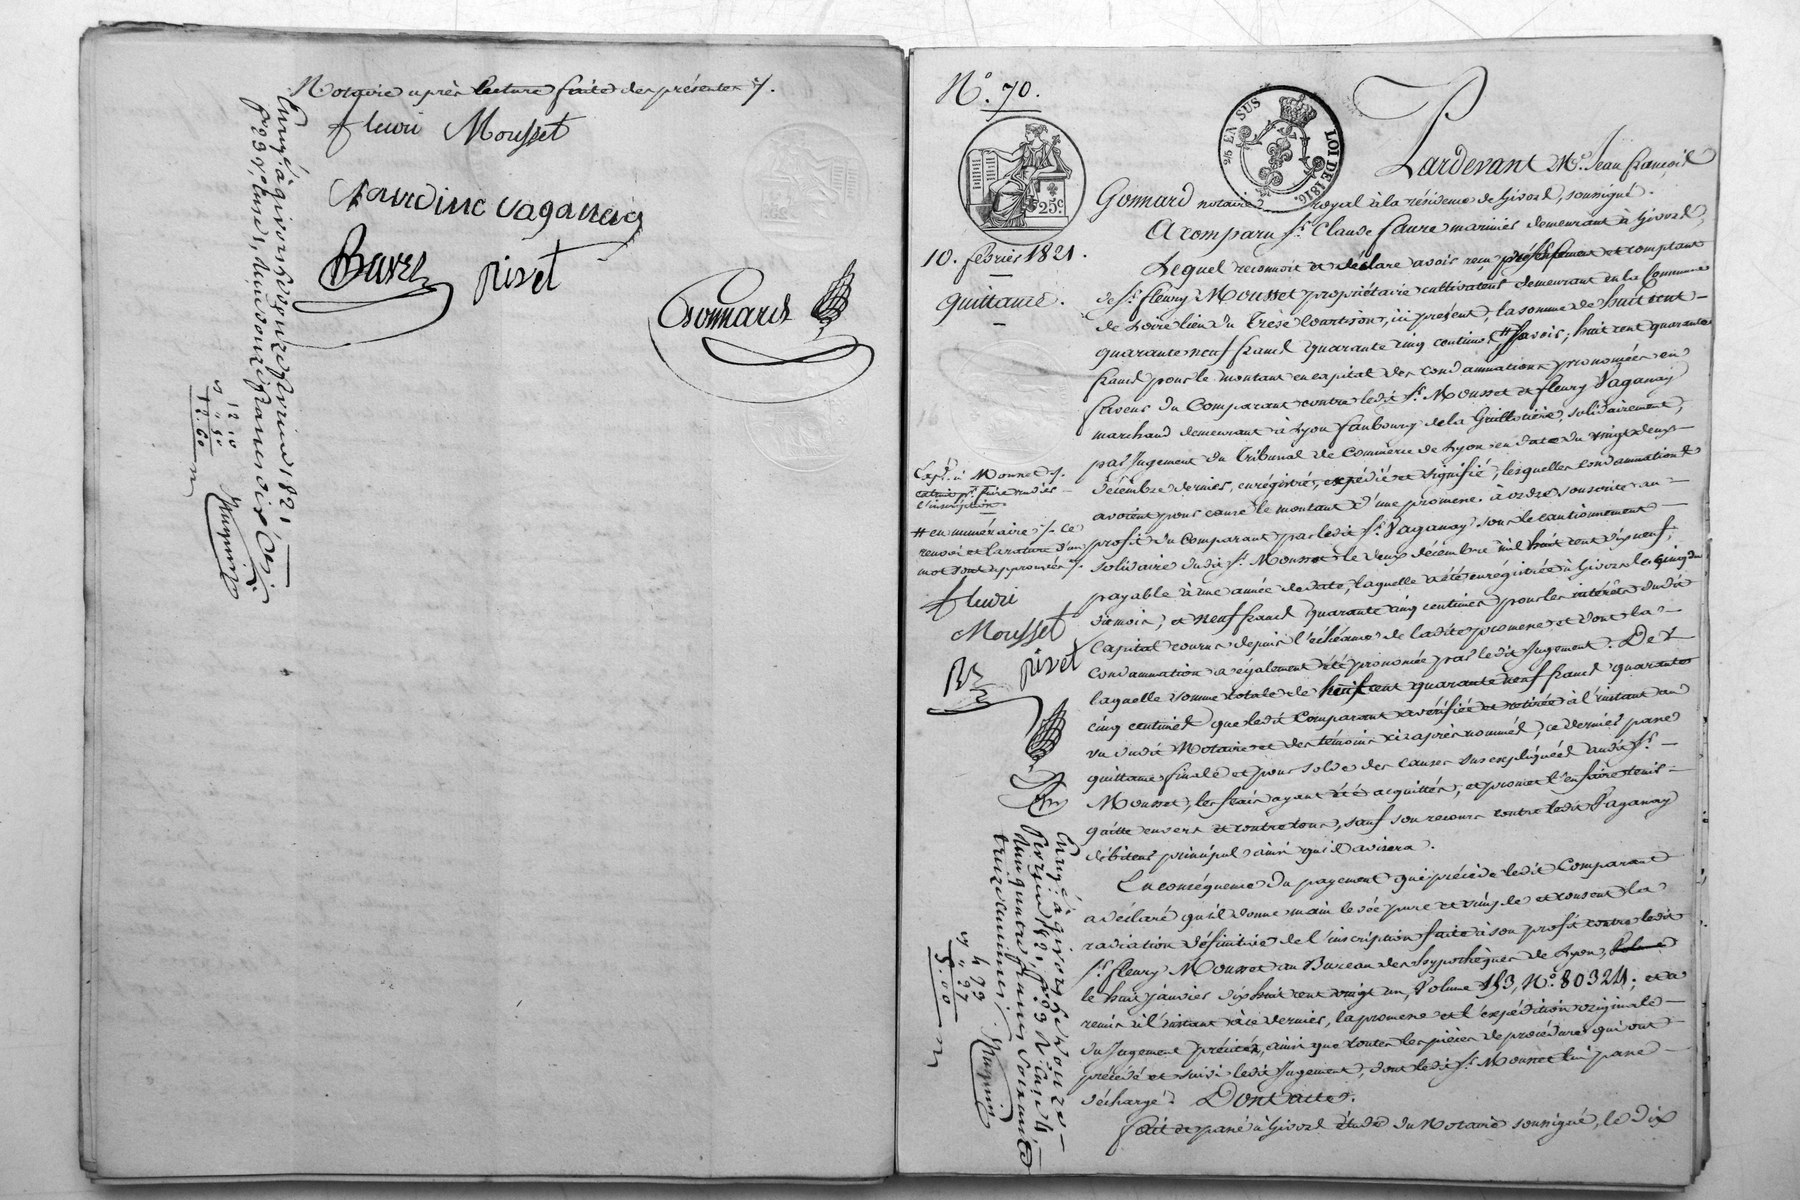 Notaire après lecture faite des présentes ./.
fleuri Mousset
vaganay
Bavet
rivet
Gomard
Enreg.é à givors le douze février 1821,
reçu douze francs dix
12 10
1 - 50
13. 60
N.o 70.
25 EN SUS LOI DE 1816
25c
10. février 1821.
quittance.
Pardevant M.e Jean françois
Gomard notaire royal à la résidence de Givors, soussigné.
A comparu s.r Claude faure marinier demeurant à Givors,
Lequel reconnoit et déclare avoir reçu présentement et comptant
de s.r fleury Mousset propriétaire cultivateur demeurant en la Commune
de Loire lieu du Trève Courtison, ici présent, la somme de huit cent
quarante neuf francs quarante cinq centimes, # savoir, huit cent quarante
francs pour le montant en capital des condamnations prononcées en
faveur du Comparant contre ledit s.r Mousset et fleury Vaganay
marchand demeurant à Lyon faubourg de la Guillotière, solidairement,
par Jugement du Tribunal de Commerce de Lyon en date du vingt deux
décembre dernier, enregistré, expédié et signifié, lesquelles condamnations
avoient pour cause le montant d'une promesse à ordre souscrite au
profit du Comparant par ledit s.r Vaganay sous le cautionnement
solidaire dudit s.r Mousset le deux décembre mil huit cent dix neuf,
payable à une année de date, laquelle a été enregistrée à Givors le cinq du
dit mois; et neuf francs quarante cinq centimes pour les intérêts dudit
Capital courus depuis l'échéance de ladite promesse et dont la
condamnation a également été prononcée par ledit Jugement. De
laquelle somme totale de huit cent quarante neuf francs quarante
cinq centimes que ledit Comparant a vérifiée et retirée à l'instant au
vu dudit Notaire et des témoins ci après nommés, ce dernier passe
quittance finale et pour solde des causes sus expliquées audit s.r
Mousset, les frais ayant été acquittés, et promet l'en faire tenir
quitte envers et contre tous, sauf son recours contre ledit Vaganay
débiteur principal ainsi qu'il avisera.
En conséquence du payement qui précède ledit Comparant
a déclaré qu'il donne main levée pure et simple et consent la
radiation définitive de l'inscription faite à son profit contre ledit
s.r fleury Mousset au Bureau des hypothèques de Lyon,
le huit janvier dix huit cent vingt un, Volume 153, N.o 80324; et a
remis à l'instant à ce dernier, la promesse et l'expédition originale
du Jugement précités, ainsi que toutes les pièces de procédures qui ont
précédé et suivi ledit Jugement, dont ledit s.r Mousset lui passe
décharge. Dont acte.
fait et passé à Givors étude du Notaire soussigné, le dix
# en numéraire ./. ce
renvoi et la rature d'un
mot sont approuvés ./.
fleuri
Mousset
rivet
Enreg.é à givors le douze
février 1821, f.o 93
quatre francs soixante
treize centimes
4 73
- 27
5. 00